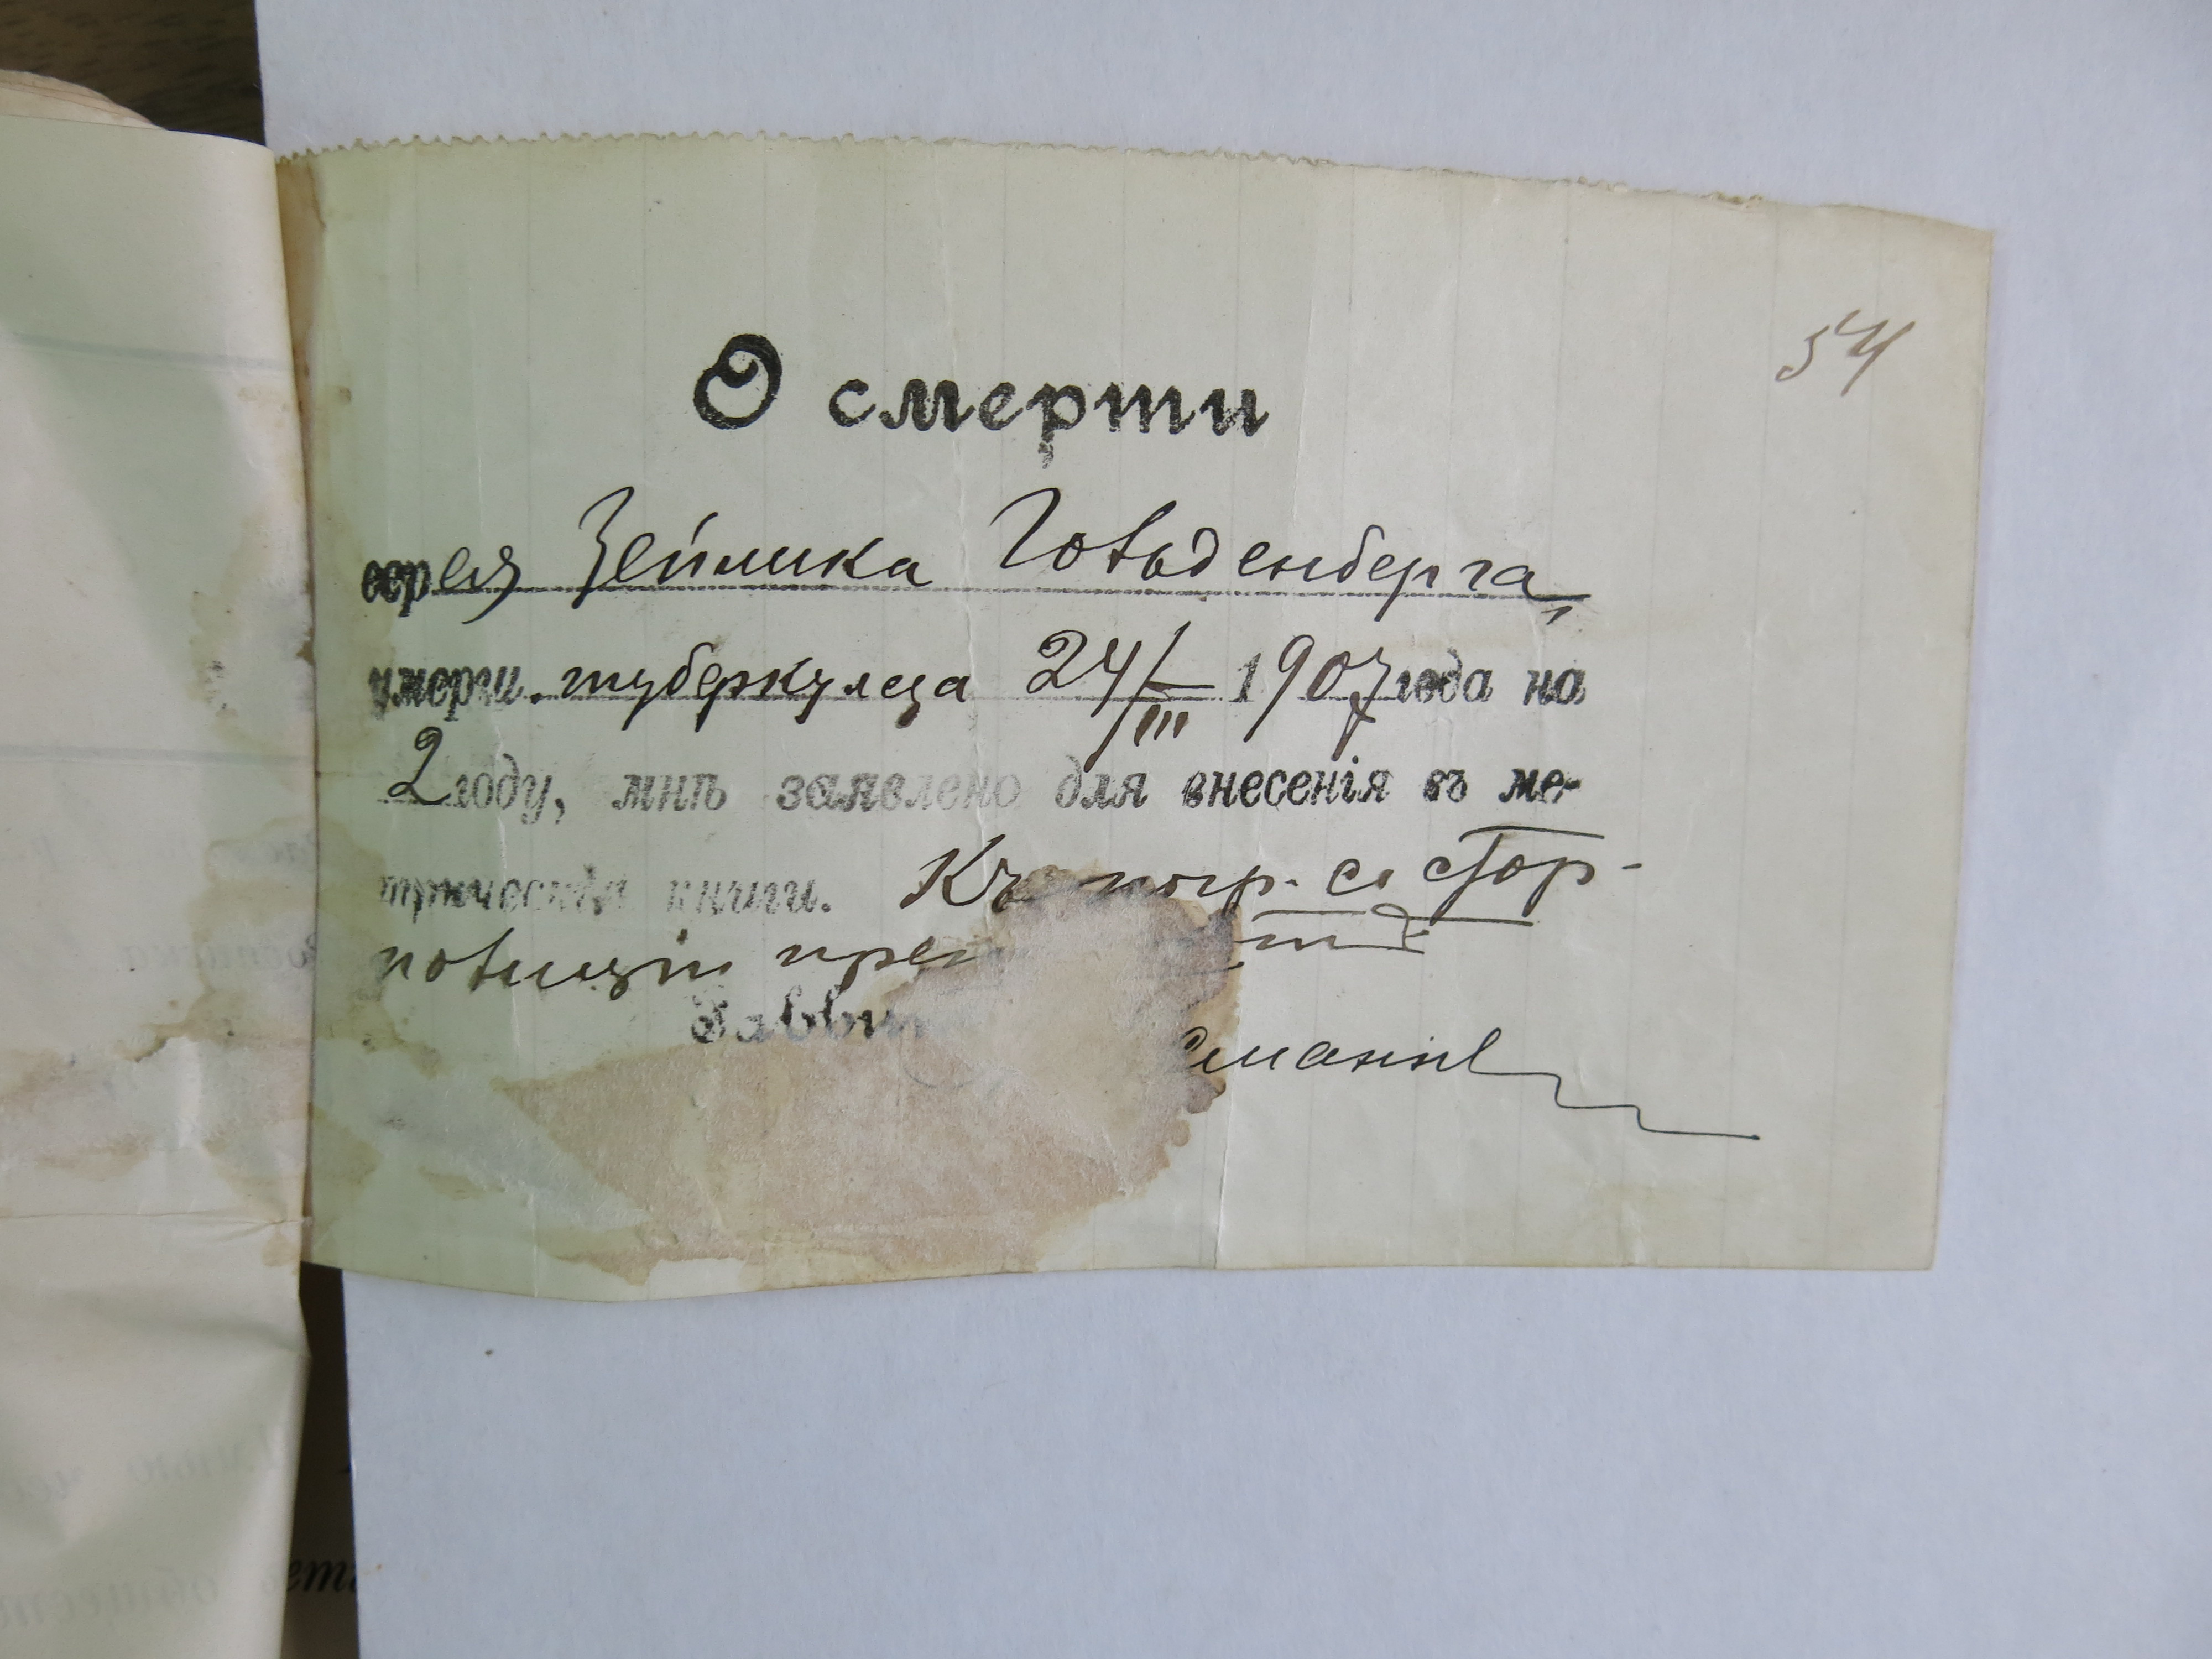 54
О смерти
еврея Зейлика Гольденберга,
умерш. туберкулеза 24/III 1907 года на
2 году, мнѣ заявлено для внесенія въ ме-
трическія книги. Къ погр. со стор.
полиціи преп тъ
Раввин